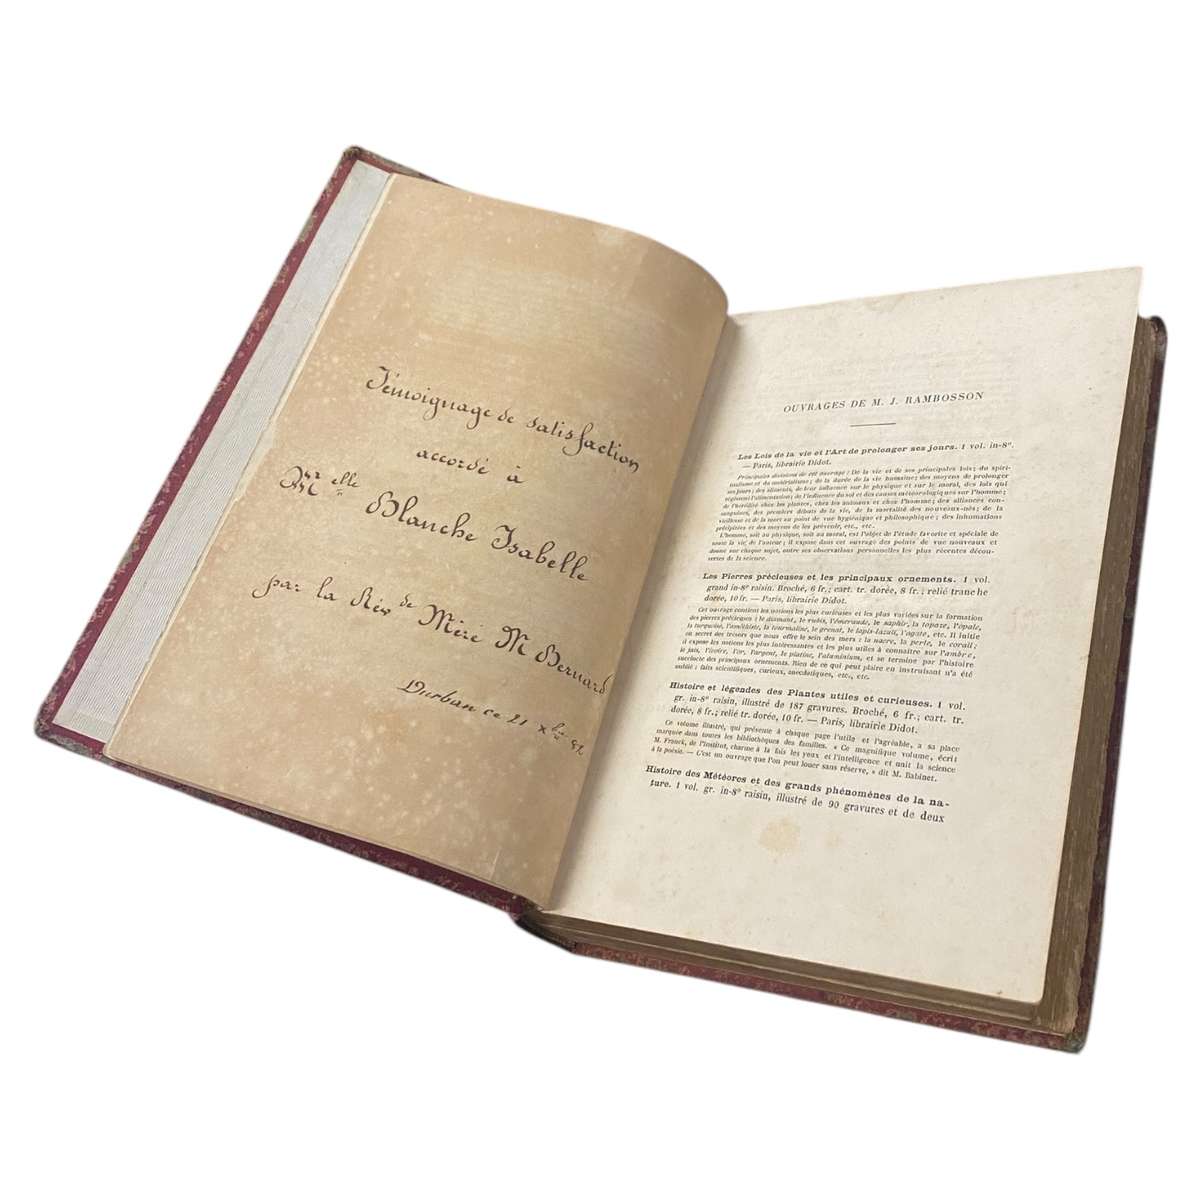 Témoignage de satisfaction
accordé à
Melle Blanche Isabelle
par la Révde Mère M Bernard
Durban ce 21 xbre
OUVRAGES DE M. J. RAMBOSSON
Les Lois de la vie et l'Art de prolonger ses jours. 1 vol. in-8º.
— Paris, librairie Didot.
Principales divisions de cet ouvrage : De la vie et de ses principales lois; du spiri-
tualisme et du matérialisme; de la durée de la vie humaine; des moyens de prolonger
ses jours; des aliments, de leur influence sur le physique et sur le moral, des lois qui
régissent l'alimentation; de l'influence du sol et des causes météorologiques sur l'homme;
de l'hérédité chez les plantes, chez les animaux et chez l'homme; des alliances con-
sanguines, des premiers débuts de la vie, de la mortalité des nouveaux-nés; de la
vieillesse et de la mort au point de vue hygiénique et philosophique; des inhumations
précipitées et des moyens de les prévenir, etc., etc.
L'homme, soit au physique, soit au moral, est l'objet de l'étude favorite et spéciale de
toute la vie de l'auteur; il expose dans cet ouvrage des points de vue nouveaux et
donne sur chaque sujet, outre ses observations personnelles les plus récentes décou-
vertes de la science.
Les Pierres précieuses et les principaux ornements. 1 vol.
grand in-8º raisin. Broché, 6 fr.; cart. tr. dorée, 8 fr.; relié tranche
dorée, 10 fr. — Paris, librairie Didot.
Cet ouvrage contient les notions les plus curieuses et les plus variées sur la formation
des pierres précieuses : le diamant, le rubis, l'émeraude, le saphir, la topaze, l'opale,
la turquoise, l'améthiste, la tourmaline, le grenat, le lapis-lazuli, l'agate, etc. Il initie
au secret des trésors que nous offre le sein des mers : la nacre, la perle, le corail;
il expose les notions les plus intéressantes et les plus utiles à connaître sur l'ambre,
le jais, l'ivoire, l'or, l'argent, le platine, l'aluminium, et se termine par l'histoire
succincte des principaux ornements. Rien de ce qui peut plaire en instruisant n'a été
oublié : faits scientifiques, curieux, anecdotiques, etc., etc.
Histoire et légendes des Plantes utiles et curieuses. 1 vol.
gr. in-8º raisin, illustré de 187 gravures. Broché, 6 fr.; cart. tr.
dorée, 8 fr.; relié tr. dorée, 10 fr. — Paris, librairie Didot.
Ce volume illustré, qui présente à chaque page l'utile et l'agréable, a sa place
marquée dans toutes les bibliothèques des familles. « Ce magnifique volume, écrit
M. Franck, de l'Institut, charme à la fois les yeux et l'intelligence et unit la science
à la poésie. — C'est un ouvrage que l'on peut louer sans réserve, » dit M. Babinet.
Histoire des Météores et des grands phénomènes de la na-
ture. 1 vol. gr. in-8º raisin, illustré de 90 gravures et de deux